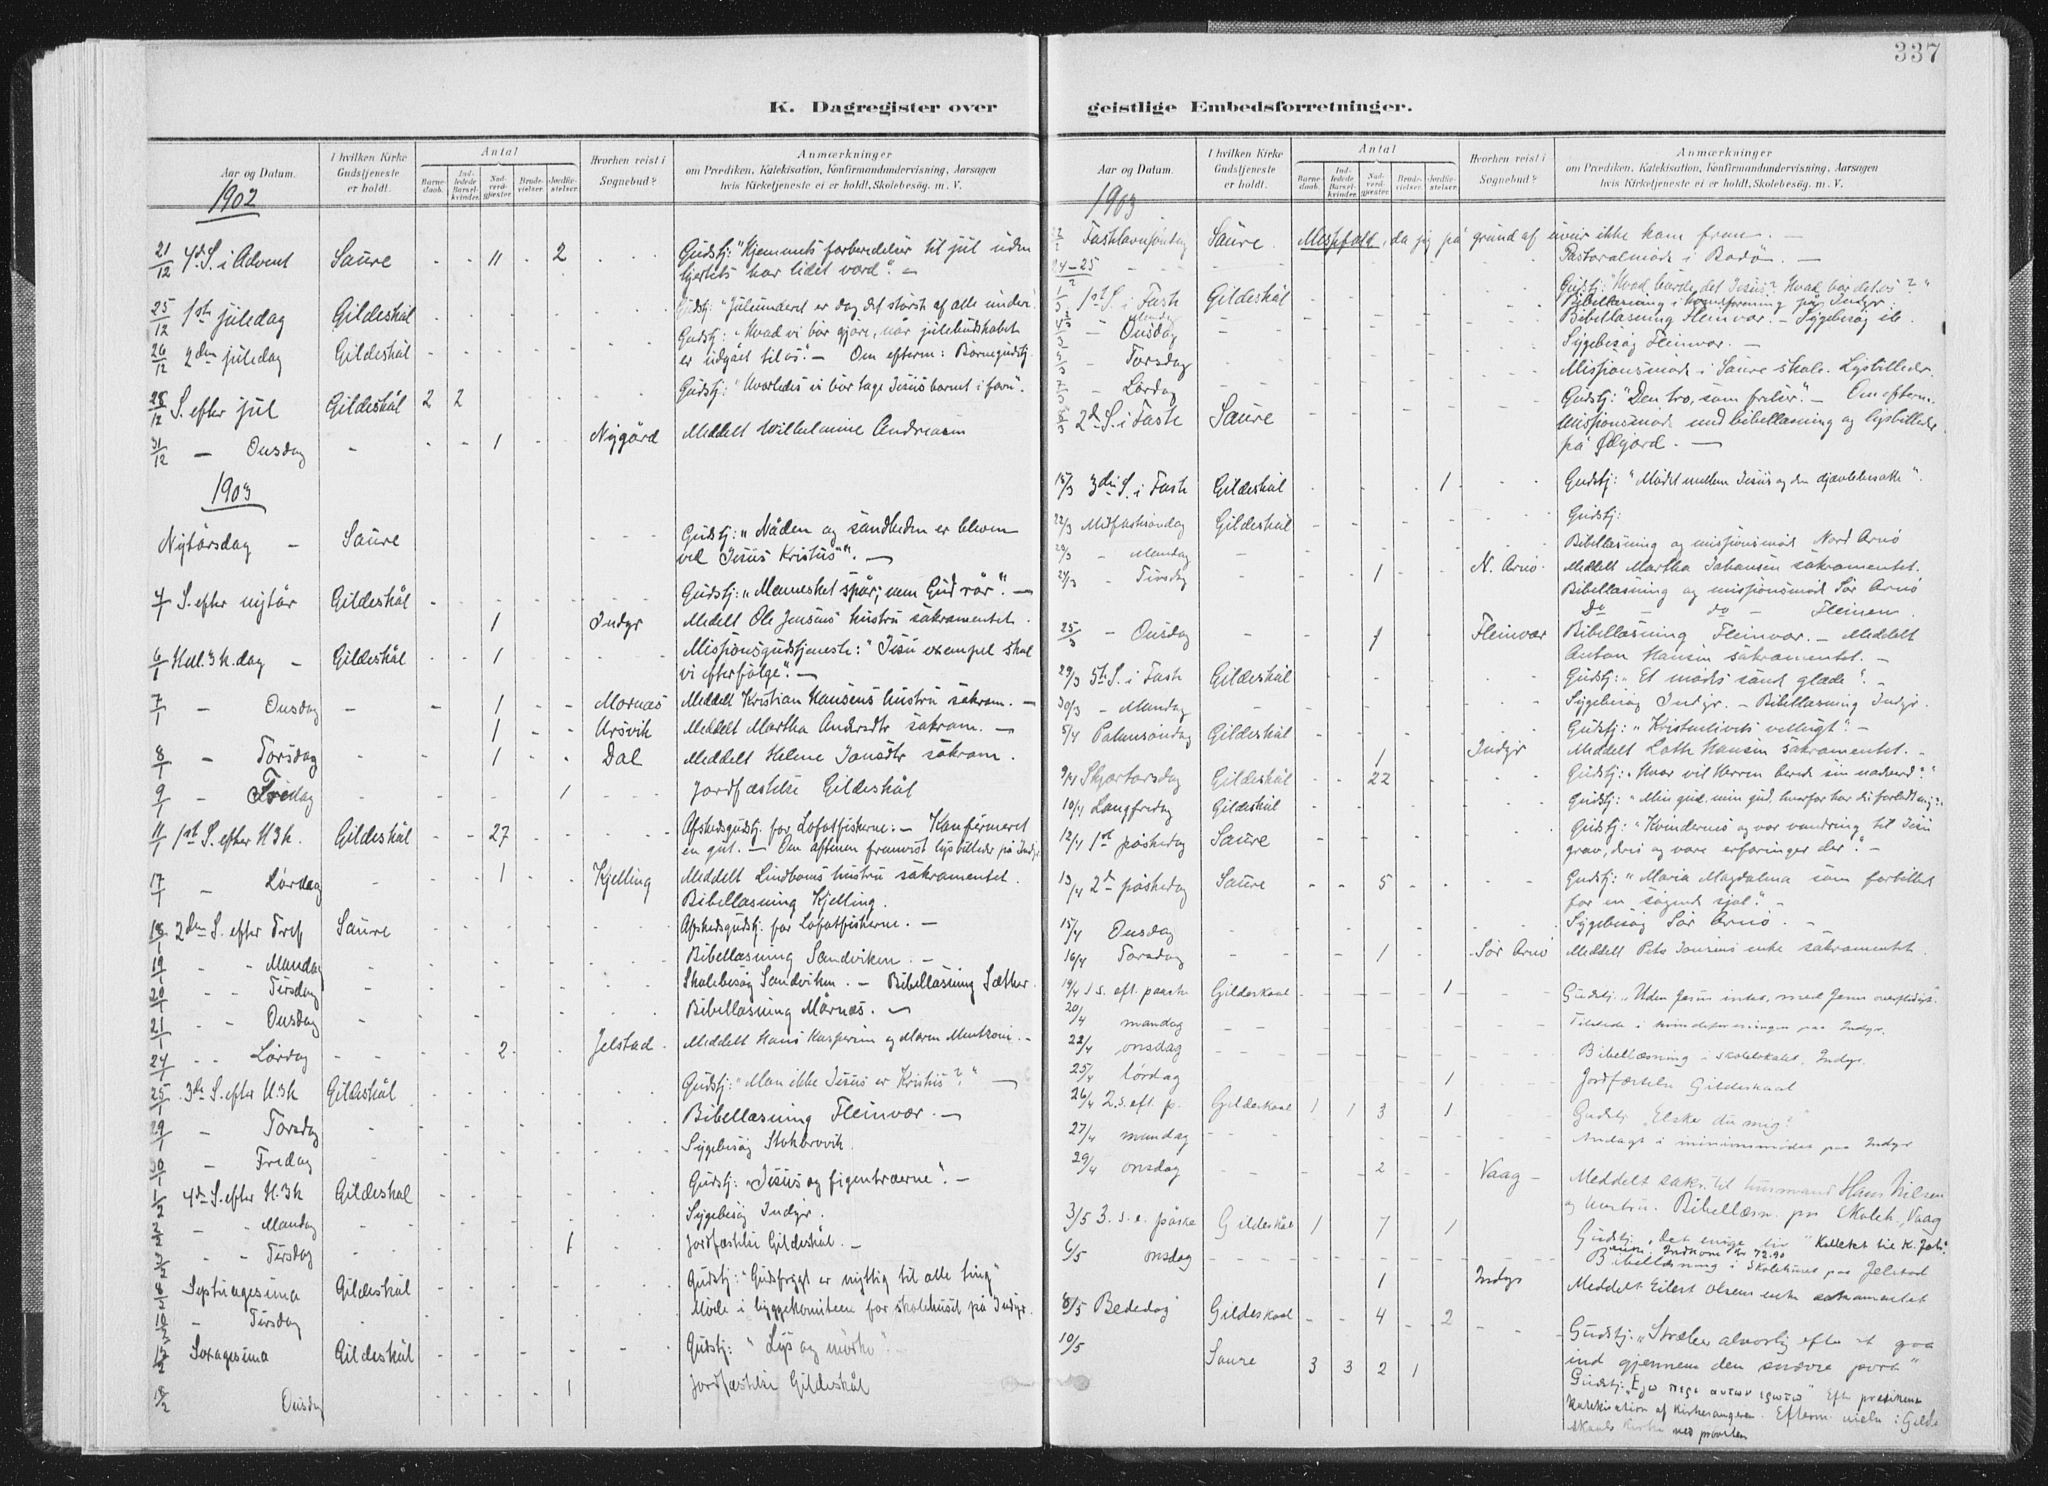 337
K. Dagregister over geistlige Embedsforretninger.
Aar og Datum.
I hvilken Kirke Gudstjeneste er holdt.
Antal
Barnedaab.
Indledede Barselkvinder.
Nadverdgjester.
Brudevielser.
Jordfæstelser.
Hvorhen reist i Sognebud?
Anmærkninger
om Prædiken, Katekisation, Konfirmandundervisning, Aarsagen
hvis Kirketjeneste ei er holdt, Skolebesøg. m. V.
1902
21/12 4de S. i Advent Saure - - 11 - 2 Gudstj: "Hjemmets forberedelser til jul uden
hjertets har lidet værd". -
25/12 1ste juledag Gildeskål Gudstj: "Juleunderet er dog det störste af alle under".
26/12 2den juledag Gildeskål Gudstj: "Hvad vi bör gjöre, når julebudskabet
er udgået til os". - Om efterm: Barnegudstj.
28/12 S. efter jul Gildeskål 2 2 Gudstj: "Hvorledes vi bör tage Jesusbarnet i favn".
31/12 - Onsdag - - - 1 - Nygård Meddelt Wilhelmine Andreasen
1903
Nytårsdag - Saure Gudstj: "Nåden og sandheden er bleven
ved Jesus Kristus". -
4/1 S. efter nytår Gildeskål Gudstj: "Mennesket spår, men Gud rår". -
1 Indyr Meddelt Ole Jensens hustru sakramentet.
6/1 Hell. 3 k. dag - Gildeskål - - 1 - Missjonsgudstjeneste: "Jesu exempel skal
vi efterfölge". -
7/1 - Onsdag - - - 1 - - Mornæs Meddelt Kristian Hansens hustru sakram. -
1 - - Ursvik Meddelt Martha Andersdtr sakram. -
8/1 - Torsdag - - 1 - - Dal Meddelt Helene Jansdtr sakram.
9/1 - Fredag - - - - 1 - - - Jordfæstelse Gildeskål
11/1 1ste S. efter H3k. Gildeskål - - 27 - Afskedsgudstj. for Lofotfiskerne. - Konfirmeret
en gut. - Om aftenen fremvist lysbilleder på Indyr
17/1 - Lördag - - 1 - - Kjelling Meddelt Lindboms hustru sakramentet.
Bibellæsning Kjelling.
18/1 2den S. efter Tref Saure Afskedsgudstj. for Lofotfiskerne. -
19/1 - - Mandag Bibellæsning Sandviken. -
20/1 - - Tirsdag Skolebesög Sandviken. - Bibellæsning Sæther.
21/1 - - Onsdag Bibellæsning Mårnæs. -
24/1 - - Lördag - - 2 - - Jelstad - Meddelt Hans Kaspersen og Maren Mentzoni. -
25/1 3die S. efter H.3k Gildeskål Gudstj: "Man ikke Jesus er Kristus?" -
29/1 - Torsdag Bibellæsning Fleinvær. -
30/1 - Fredag Sygebesög
1/2 4de S. efter H.3k Gildeskål Gudstj: "Jesus og figentræerne". -
2/2 - - Mandag Sygebesög Indyr.
3/2 - - Tirsdag 1 Jordfæstelse Gildeskål. -
8/2 Septuagesima Gildeskål Gudstj: "Gudsfrygt er nyttig til alle ting"
10/2 - Tirsdag Möde i byggekomiteen for skolehuset på Indyr.
15/2 Sexagesima Gildeskål Gudstj: "Lys og mörke".
18/2 Onsdag 1 Jordfæstelse Gildeskål
1903
Fastelavnsöndag Saure. Missfald, da jeg på grund af uveir ikke kom frem. -
24-25/2 - - - Pastoralmöde i Bodö. -
1/3 1ste S. i Faste Gildeskål Gudstj: "Hvad burde det Jesus? Hvad bör det os?"
Mandag Bibellæsning i kvindforening på Indyr.
4/3 - Onsdag Bibellæsning Fleinvær. - Sygebesög ib.
5/3 - Torsdag Sygebesög Fleinvær. -
7/3 - Lördag Missjonsmöde i Saure skole. Lysbilleder.
8/3 2den S. i Faste Saure Gudstj: "Den tro, som frelser". - Om efterm.
Missjonsmöde med bibellæsning og lysbilleder
på Öegård. -
15/3 3die S. i Faste Gildeskål 1 Gudstj: "Mödet mellem Jesus og den djævlebesatte".
22/3 Midfastesöndag Gildeskål Gudstj:
23/3 - Mandag - Bibellæsning og missjonsmöde Nord Arnö
24/3 - Tirsdag 1 N. Arnö. Meddelt Martha Johansen sakramentet.
Bibellæsning og missjonsmöde Sör Arnö
Do - do - Fleinen.
25/3 - Onsdag - - 1 Fleinvær Bibellæsning Fleinvær. - Meddelt
Anton Hansen sakramentet. -
29/3 5te S. i Faste Gildeskål Gudstj: "Et mödes sande glæde". -
30/3 - Mandag - Sygebesög Indyr. - Bibellæsning Indyr.
5/4 Palmesöndag Gildeskål Gudstj: "Kristenlivets vellugt". -
1 Indyr Meddelt Lath Hansen sakramentet. -
9/4 Skjærtorsdag Gildeskål - - 22 - Gudstj: "Hvor vil Herren berede sin nadverd?"
10/4 Langfredag Gildeskål Gudstj: "Min gud, min gud, hvorfor har du forladt mig?"
12/4 1ste påskedag Saure Gudstj: "Kvindernes og vor vandring til Jesu
grav, deres og vore erfaringer der". -
13/4 2den påskedag Saure - - 5 - Gudstj: "Maria Magdalena som forbillede
for en sögende sjæl". -
15/4 Onsdag Sygebesög Sör Arnö. -
16/4 Torsdag - - 1 - - Sör Arnö Meddelt Peter Jensens enke sakramentet.
19/4 1 s. eft. paaske Gildeskaal 1 Gudstj. "Uden Jesus intet, med Jesus overflödigt".
20/4 mandag Tilstede i kvindeforeningen paa Indyr.
22/4 onsdag Bibellæsning i skolelokalet, Indyr.
25/4 lördag 1 Jordfæstelse Gildeskaal
26/4 2. s. eft. p. Gildeskaal 1 1 3 - 1 Gudstj "Elsker du mig?"
27/4 mandag Andagt i missionsmödet paa Indyr
29/4 onsdag - - 2 - - Vaag - Meddelt sakr. til husmand Hans Nilsen
og hustru. Bibellæsn. paa Skoleh., Vaag
3/5 3. s. e. påske Gildeskål 1 - 7 - 1 Gudstj. "Det evige liv" Kollekt til K. Joh.
Indkom kr 72.90
6/5 onsdag Bibellæsning i Skolehuset paa Jelstad
1 Indyr Meddelt Eilert Olsens enke sakramentet
8/5 Bededag Gildeskaal - - 4 - 2 Gudstj: "Stræber alvorlig efter at gaa
ind gjennem den snævre port"
10/5 Saure 3 3 2 1 Gudstj: "Εγω περι αυτων ερωτω" Efter prædikenen
Katekisation af Kirkesangeren. Efterm. i Gilde
skaals Kirke ved provsten